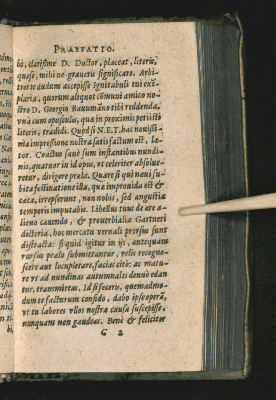 PRÆFATIO.
bi, clarissime D. Doctor, placeat, literis,
quæso, mihi ne graueris significare. Arbi
tror te dudum accepisse Ignitabuli tui exẽ
plaria, quorum aliquot cõmuni amico no-
stro D. Georgio Baumãno tibi reddenda,
vnà cum opusculis, qua in proximis petiisti
literis, tradidi. Quòd si N. E. T. hac nouissi-
ma impressione nostra satis factum est, læ-
tor. Coactus sanè sum instantibus nundi-
nis, quatuor in id opus, vt celeriter absolue-
retur, dirigere præla. Quare si qui neui su-
bita festinatione illa, quæ improuida est &
cæca, irrepserunt, non nobis, sed angustiæ
temporis imputabis. Libellus tuus de are a-
lieno cauendo, & prouerbialia Gartneri
dicteria, hoc mercatu vernali prorsus sunt
distracta: si quid igitur in ijs, antequam
rursus prælo submittantur, velis recogno-
scere aut locupletare, facias citò: ac matu-
rè vt ad nundinas autumnales denuò edan
tur, transmittas. Id si feceris, quemadmo-
dum te facturum confido, dabo ipse operã,
vt tu labores vllos nostra causa suscepisse,
nunquam non gaudeas. Benè & feliciter
C 2